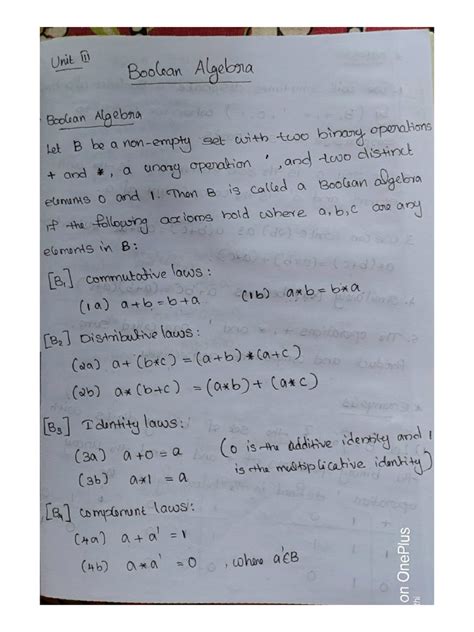 Unit II
Boolean Algebra
Boolean Algebra
Let B be a non-empty set with two binary operations
+ and *, a unary operation ', and two distinct
elements 0 and 1. Then B is called a Boolean algebra
if the following axioms hold where a, b, c are any
elements in B:
[B₁] commutative laws:
(1a) a+b=b+a (1b) a*b=b*a
[B₂] Distributive laws:
(2a) a+(b*c)=(a+b)*(a+c)
(2b) a*(b+c) =(a*b)+(a*c)
[B₃] Identity laws:
(3a) a+0=a (0 is the additive identity and 1
(3b) a*1=a is the multiplicative identity)
[B₄] complement laws:
(4a) a+a'=1
(4b) a*a'=0, where a'∈B
on OnePlus